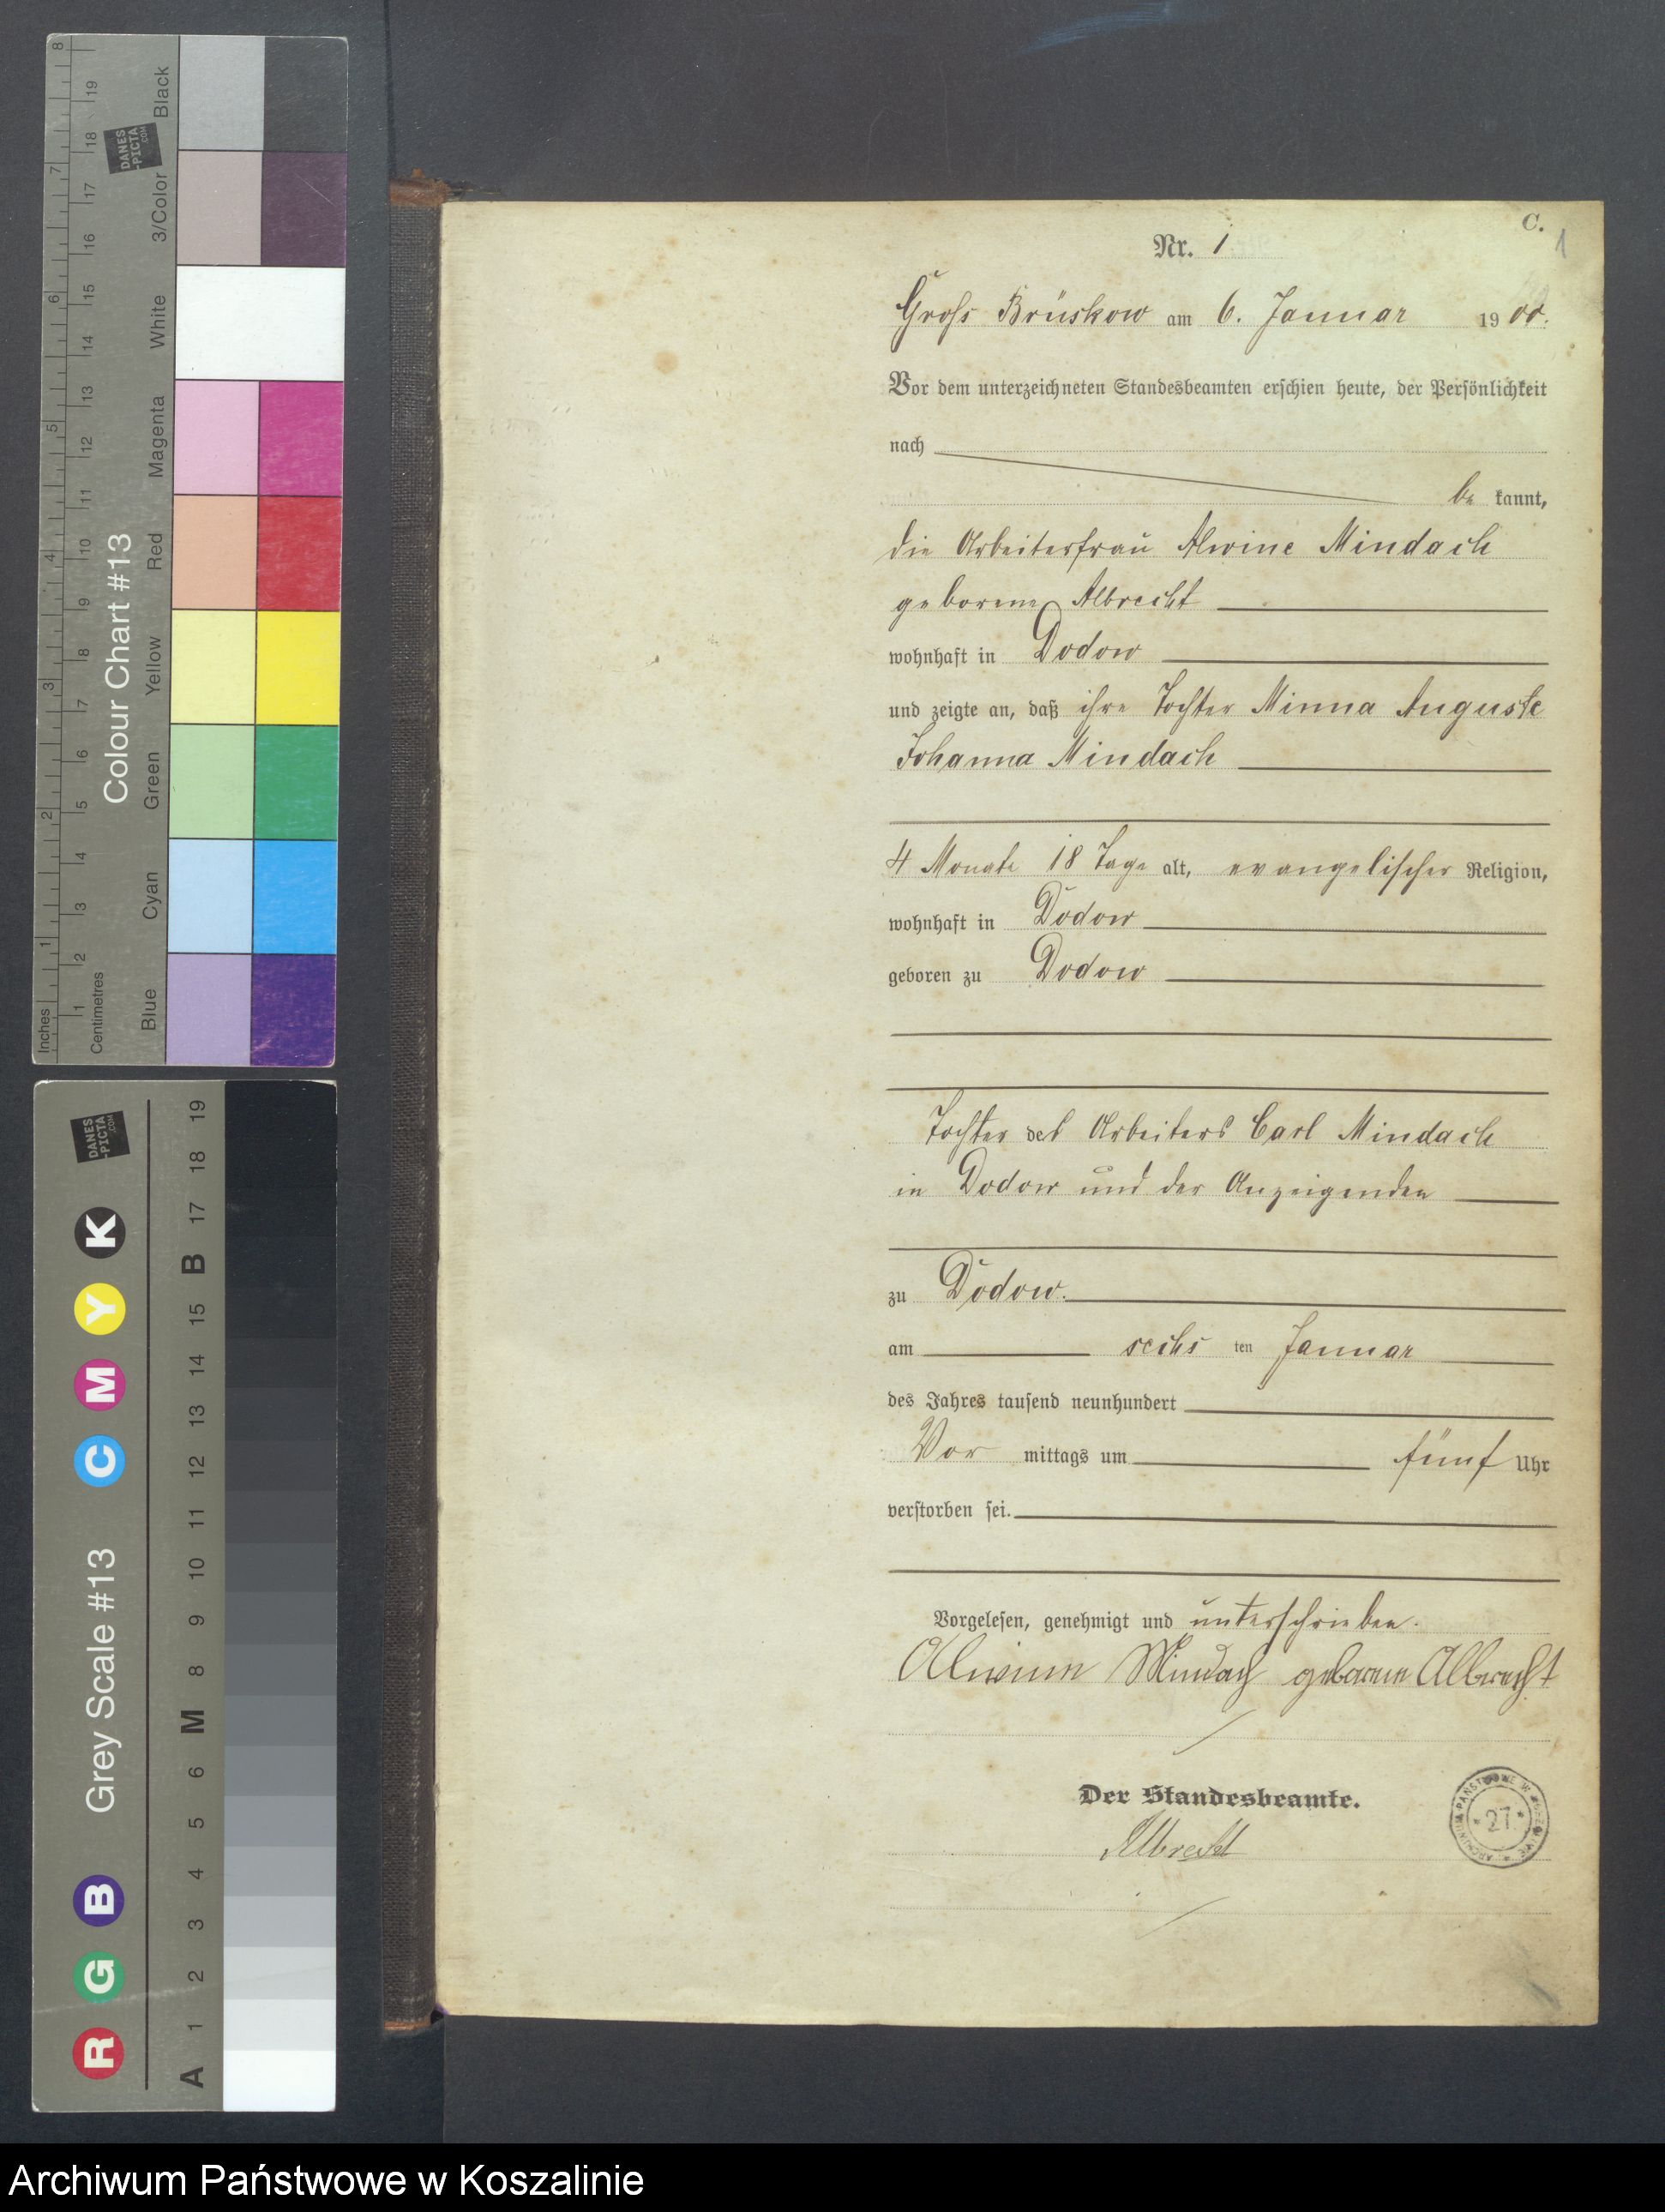 C.
1
Nr. 1
Groß Brüskow am 6. Januar 1900.
Vor dem unterzeichneten Standesbeamten erschien heute, der Persönlichkeit
nach
be kannt,
die Arbeiterfrau Alwine Mindach
geborene Albrecht
wohnhaft in Dodow
und zeigte an, daß ihre Tochter Minna Auguste
Johanna Mindach
4 Monate 18 Tage alt, evangelischer Religion,
wohnhaft in Dodow
geboren zu Dodow
Tochter des Arbeiters Carl Mindach
in Dodow und der Anzeigenden
zu Dodow.
am sechs ten Januar
des Jahres tausend neunhundert
Vor mittags um fünf Uhr
verstorben sei.
Vorgelesen, genehmigt und unterschrieben.
Alwine Mindach geborene Albrecht
Der Standesbeamte.
Albrecht
ARCHIWUM PAŃSTWOWE W
* 27 *
8 7 6 5 4 3 2 1 Inches
19 18 17 16 15 14 13 12 11 10 9 8 7 6 5 4 3 2 1 Centimetres
DANES
-PICTA
.COM
Colour Chart #13
Black
3/Color
White
Magenta
Red
Yellow
Green
Cyan
Blue
DANES
-PICTA
.COM
R G B Grey Scale #13 C M Y K
A 1 2 3 4 5 6 M 8 9 10 11 12 13 14 15 B 17 18 19
Archiwum Państwowe w Koszalinie